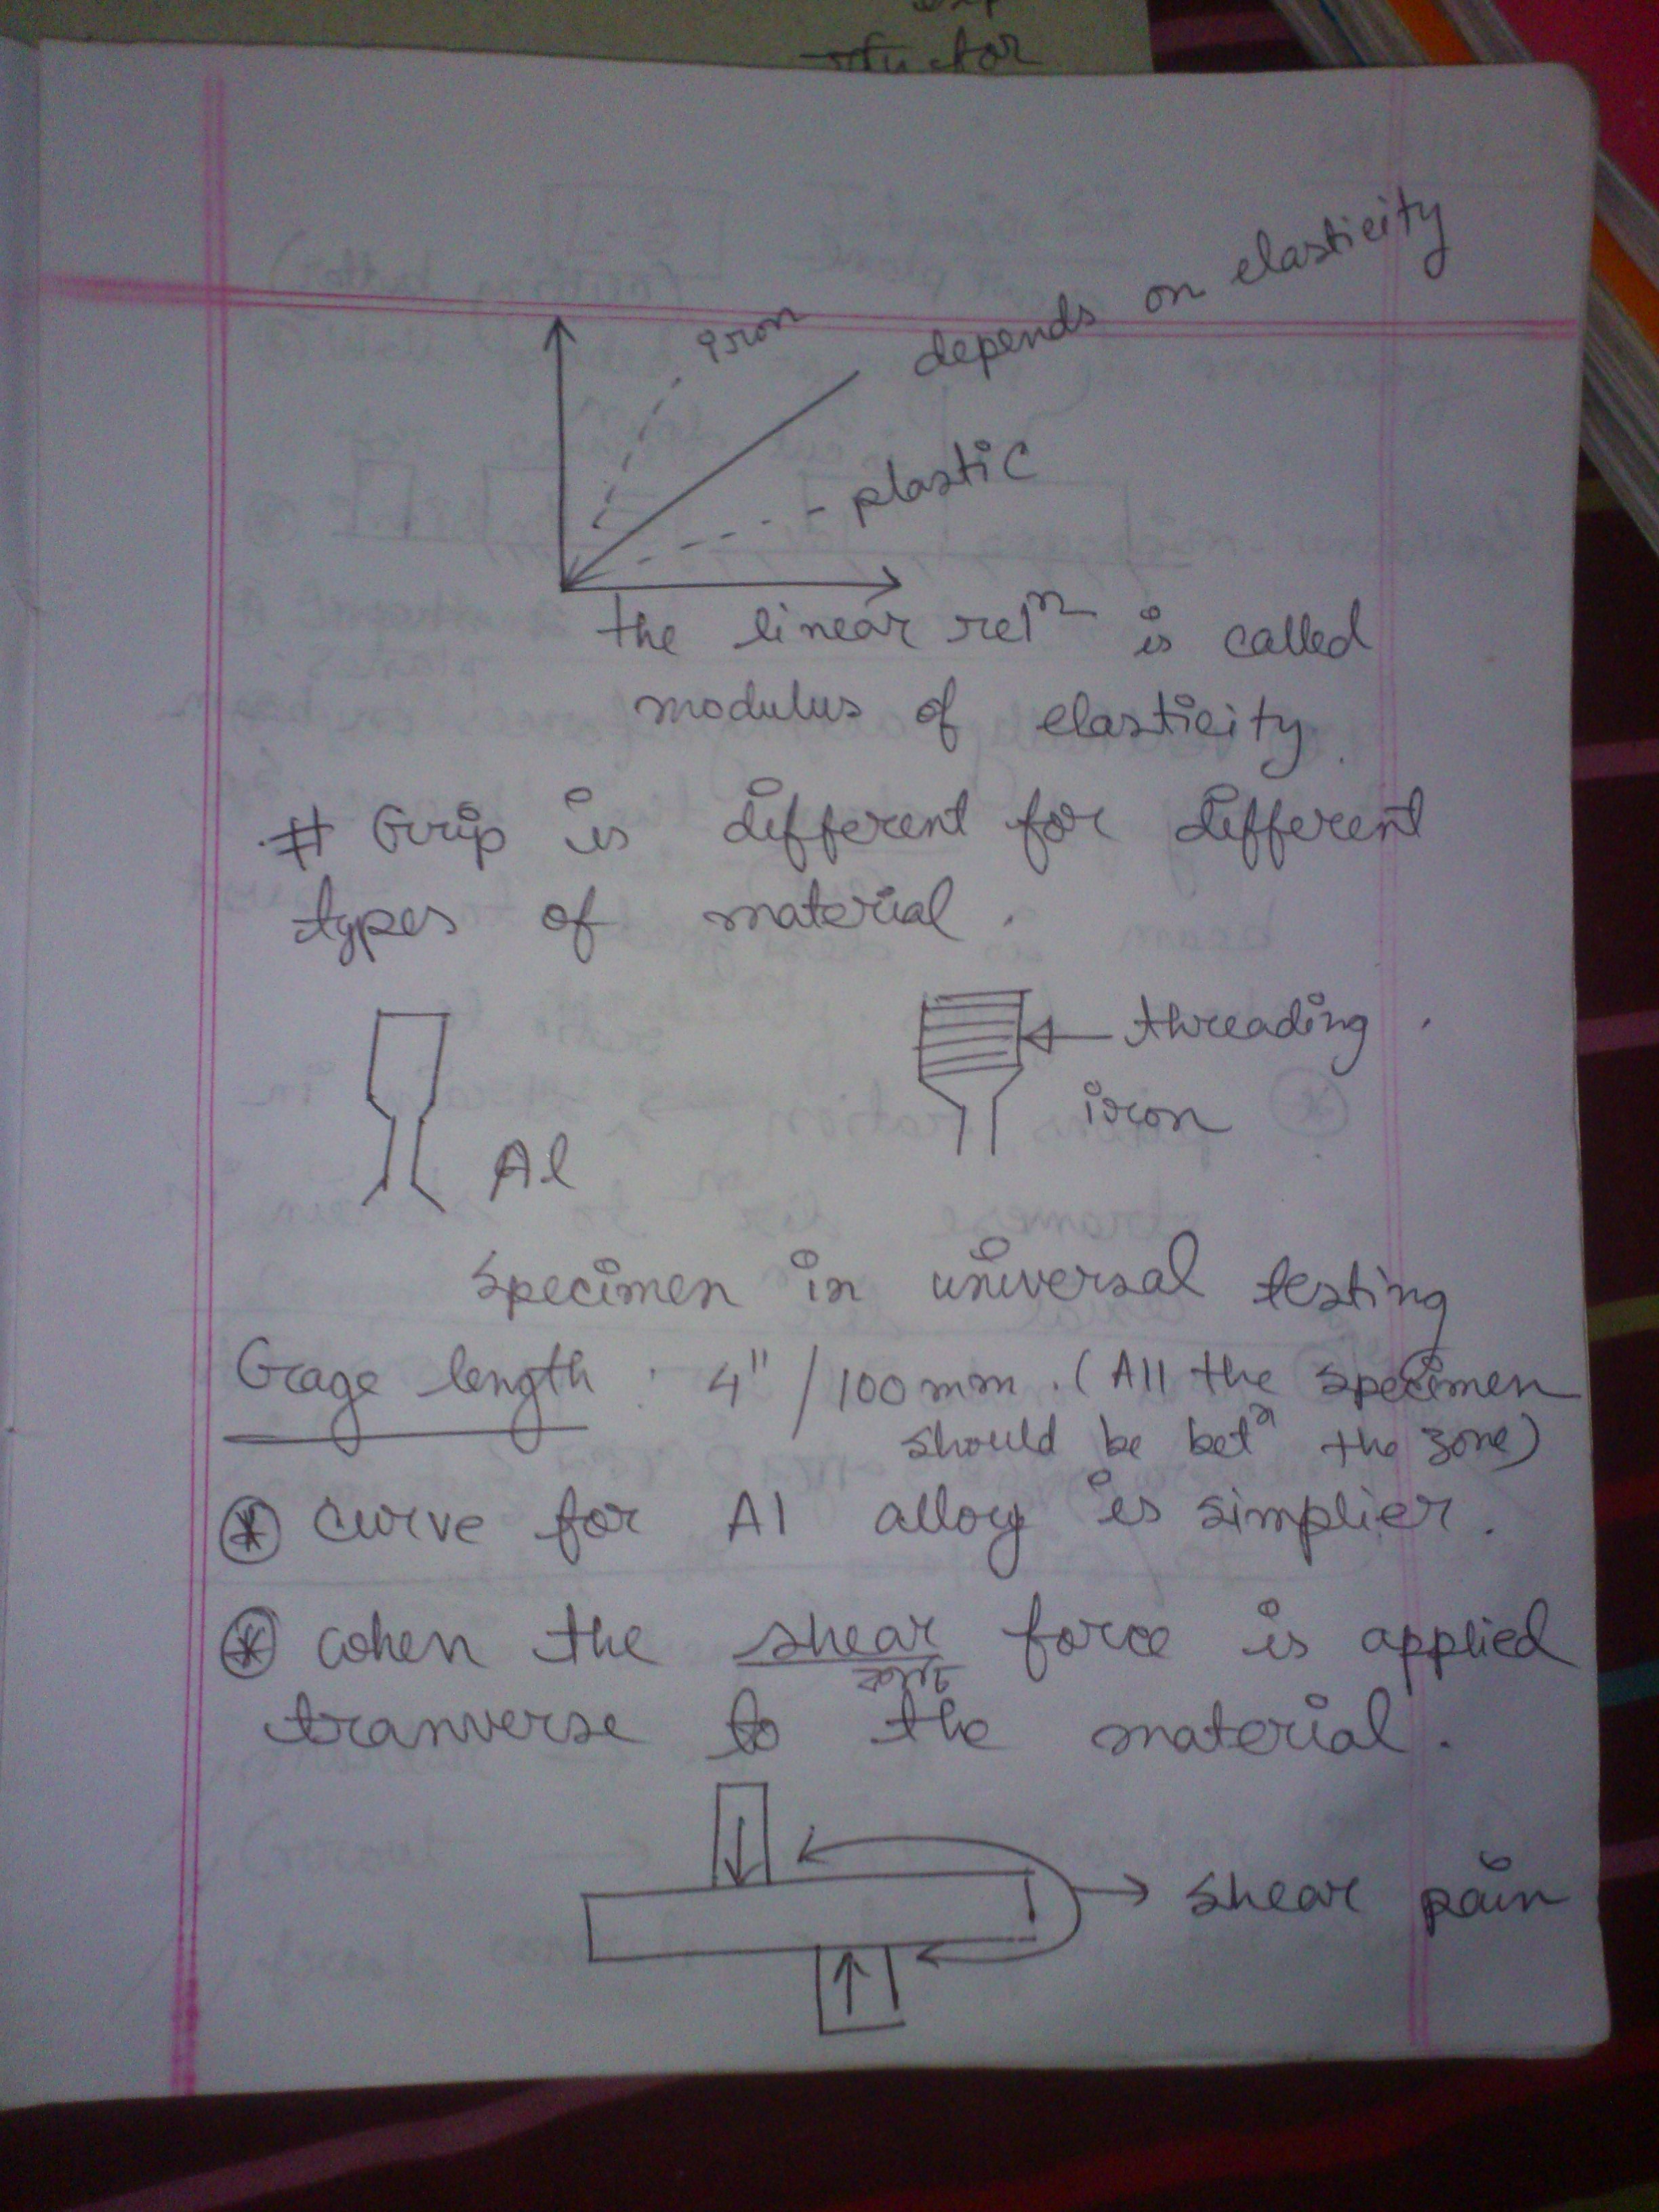 ructor
iron
depends on elasticity
plastic
the linear relⁿ is called
modulus of elasticity.
# Grip is different for different
types of material.
threading
iron
Al
specimen in universal testing
Gage length : 4" / 100mm. (All the specimen
should be betⁿ the zone)
* curve for Al alloy is simplier.
* when the shear force is applied
tranverse to the material.
shear pain